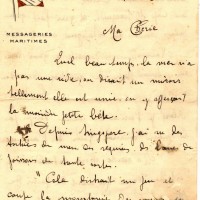 MESSAGERIES
MARITIMES
Ma Chérie
Quel beau temps, la mer n'a
pas une ride, on dirait un miroir
tellement elle est unie, on y aperçoit
la moindre petite bête.
Depuis Singapore, j'ai vu des
tortues de mer, des requins, des bancs de
poissons de toute sorte.
"Cela distrait un peu et
coupe la monotonie